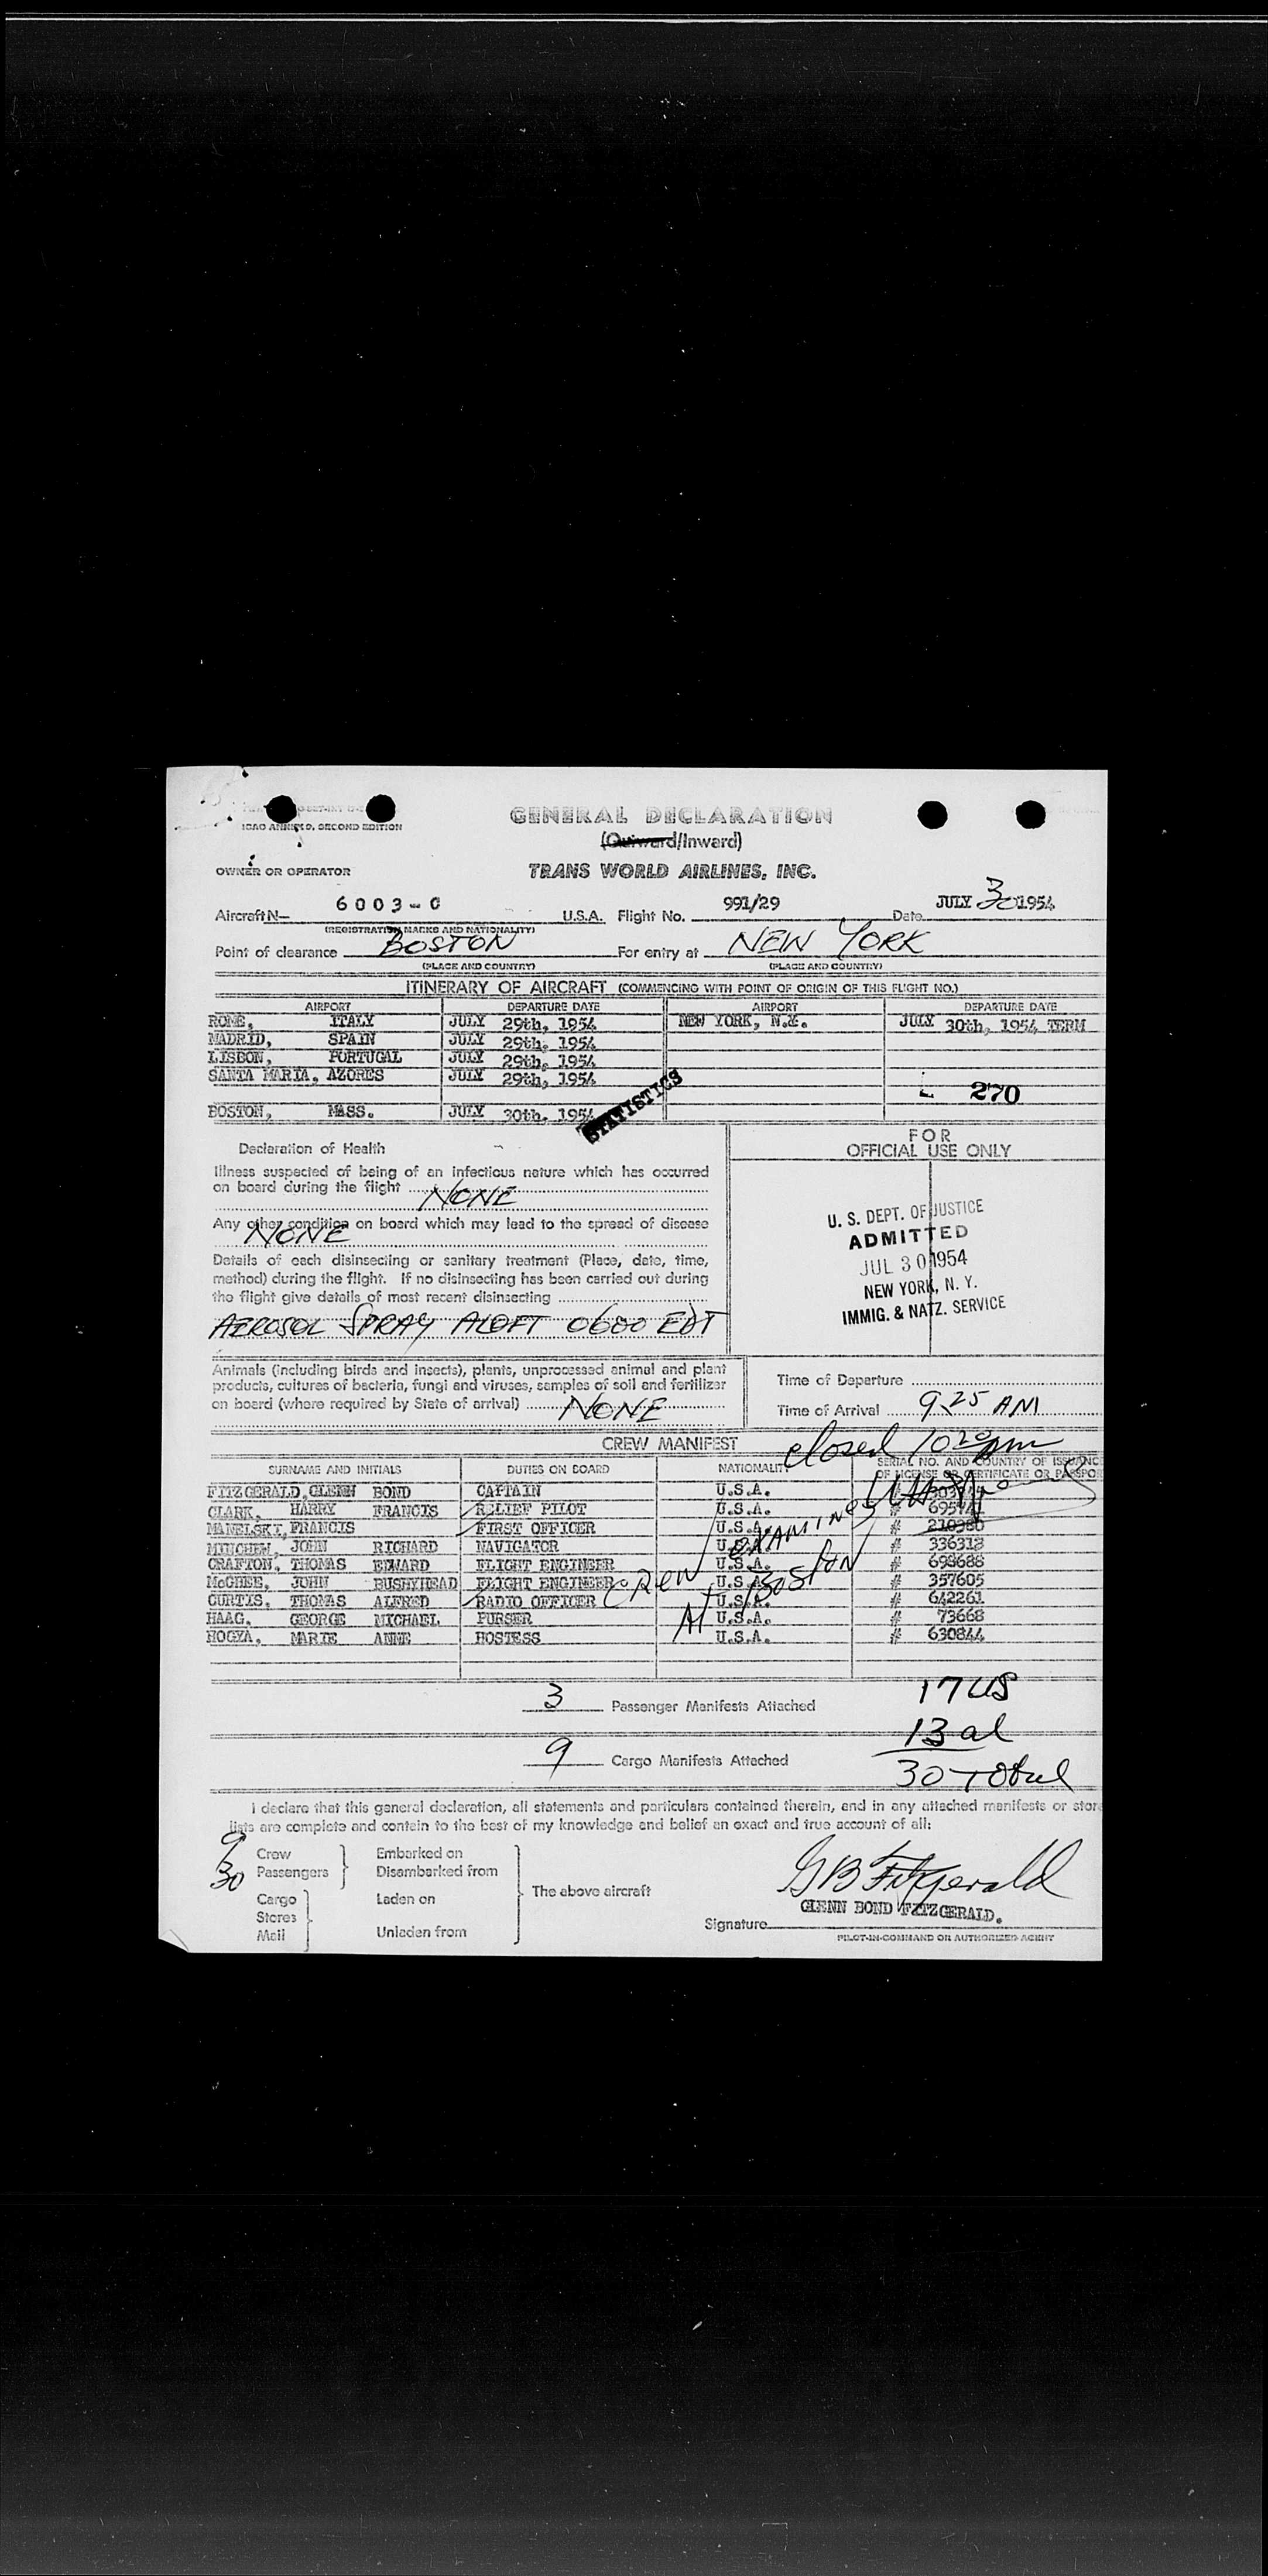 ICAO ANNEX 9, SECOND EDITION
GENERAL DECLARATION
(Outward/Inward)
OWNER OR OPERATOR TRANS WORLD AIRLINES, INC.
Aircraft N— 6003-C U.S.A. Flight No. 991/29 Date JULY 30 1954
(REGISTRATION MARKS AND NATIONALITY)
Point of clearance BOSTON For entry at NEW YORK
(PLACE AND COUNTRY) (PLACE AND COUNTRY)
ITINERARY OF AIRCRAFT (COMMENCING WITH POINT OF ORIGIN OF THIS FLIGHT NO.)
AIRPORT DEPARTURE DATE AIRPORT DEPARTURE DATE
ROME, ITALY JULY 29th, 1954 NEW YORK, N.Y. JULY 30th, 1954 TERM
MADRID, SPAIN JULY 29th, 1954
LISBON, PORTUGAL JULY 29th, 1954
SANTA MARIA, AZORES JULY 29th, 1954
270
BOSTON, MASS. JULY 30th, 1954
STATISTICS
Declaration of Health
Illness suspected of being of an infectious nature which has occurred
on board during the flight NONE
Any other condition on board which may lead to the spread of disease
NONE
Details of each disinsecting or sanitary treatment (Place, date, time,
method) during the flight. If no disinsecting has been carried out during
the flight give details of most recent disinsecting
AEROSOL SPRAY ALOFT 0600 EDT
FOR
OFFICIAL USE ONLY
U. S. DEPT. OF JUSTICE
ADMITTED
JUL 30 1954
NEW YORK, N. Y.
IMMIG. & NATZ. SERVICE
Animals (including birds and insects), plants, unprocessed animal and plant
products, cultures of bacteria, fungi and viruses, samples of soil and fertilizer
on board (where required by State of arrival) NONE
Time of Departure
Time of Arrival 9:25 AM
closed 10 20 pm
CREW MANIFEST
SURNAME AND INITIALS DUTIES ON BOARD NATIONALITY SERIAL NO. AND COUNTRY OF ISSUANCE
OF LICENSE OR CERTIFICATE OR PASSPOR
FITZGERALD, GLENN BOND CAPTAIN U.S.A.
CLARK, HARRY FRANCIS RELIEF PILOT U.S.A. #
MANELSKI, FRANCIS FIRST OFFICER U.S.A. # 210980
MINCHEN, JOHN RICHARD NAVIGATOR U.S.A. # 336318
CRAFTON, THOMAS EDWARD FLIGHT ENGINEER U.S.A. # 698688
McGHEE, JOHN BUSHYHEAD FLIGHT ENGINEER U.S.A. # 357605
CURTIS, THOMAS ALFRED RADIO OFFICER U.S.A. # 642261
HAAG, GEORGE MICHAEL PURSER U.S.A. # 73668
HOGYA, MARIE ANNE HOSTESS U.S.A. # 630844
CREW EXAMINED
AT BOSTON
3 Passenger Manifests Attached
9 Cargo Manifests Attached
17 US
13 al
30 Total
I declare that this general declaration, all statements and particulars contained therein, and in any attached manifests or store
lists are complete and contain to the best of my knowledge and belief an exact and true account of all:
9 Crew Embarked on
30 Passengers Disembarked from
Cargo Laden on The above aircraft
Stores
Mail Unladen from
G B Fitzgerald
GLENN BOND FITZGERALD.
Signature
PILOT-IN-COMMAND OR AUTHORIZED AGENT